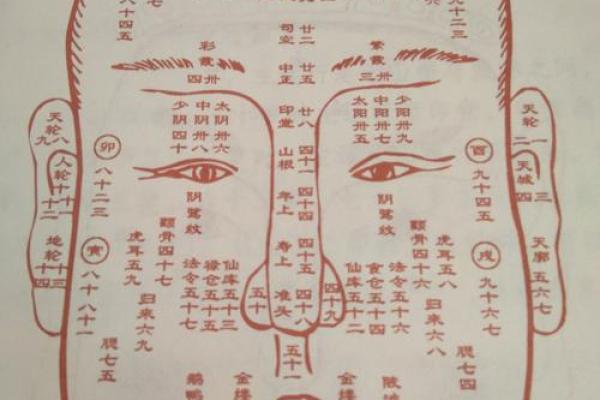 八十四五
七
九十二三
司空 廿二
中正 廿五
印堂 廿八
山根 四十一
年上 四十四
寿上 四十五
准头 四十八
彩霞 卅四
繁霞 卅三
太阴卅六
中阴卅八
少阴四十
太阳卅五
中阳卅七
少阳卅九
天轮八九
人轮十十一十二
地轮十三十四
天轮一二
天城三四
天廓五六七
卯
八十二三
寅
八十八十一
酉
九十四五
戌
九十六七
阴骘纹
阴骘纹
颧骨四十七
虎耳五九
归来六九
腮七五
法令五十七
禄仓五十五
仙库五十三
五十
四十九
仙库五十二
食仓五十四
法令五十六
颧骨四十六
虎耳五八
归来六八
腮七四
五十一
鹅鸭
金缕
金缕